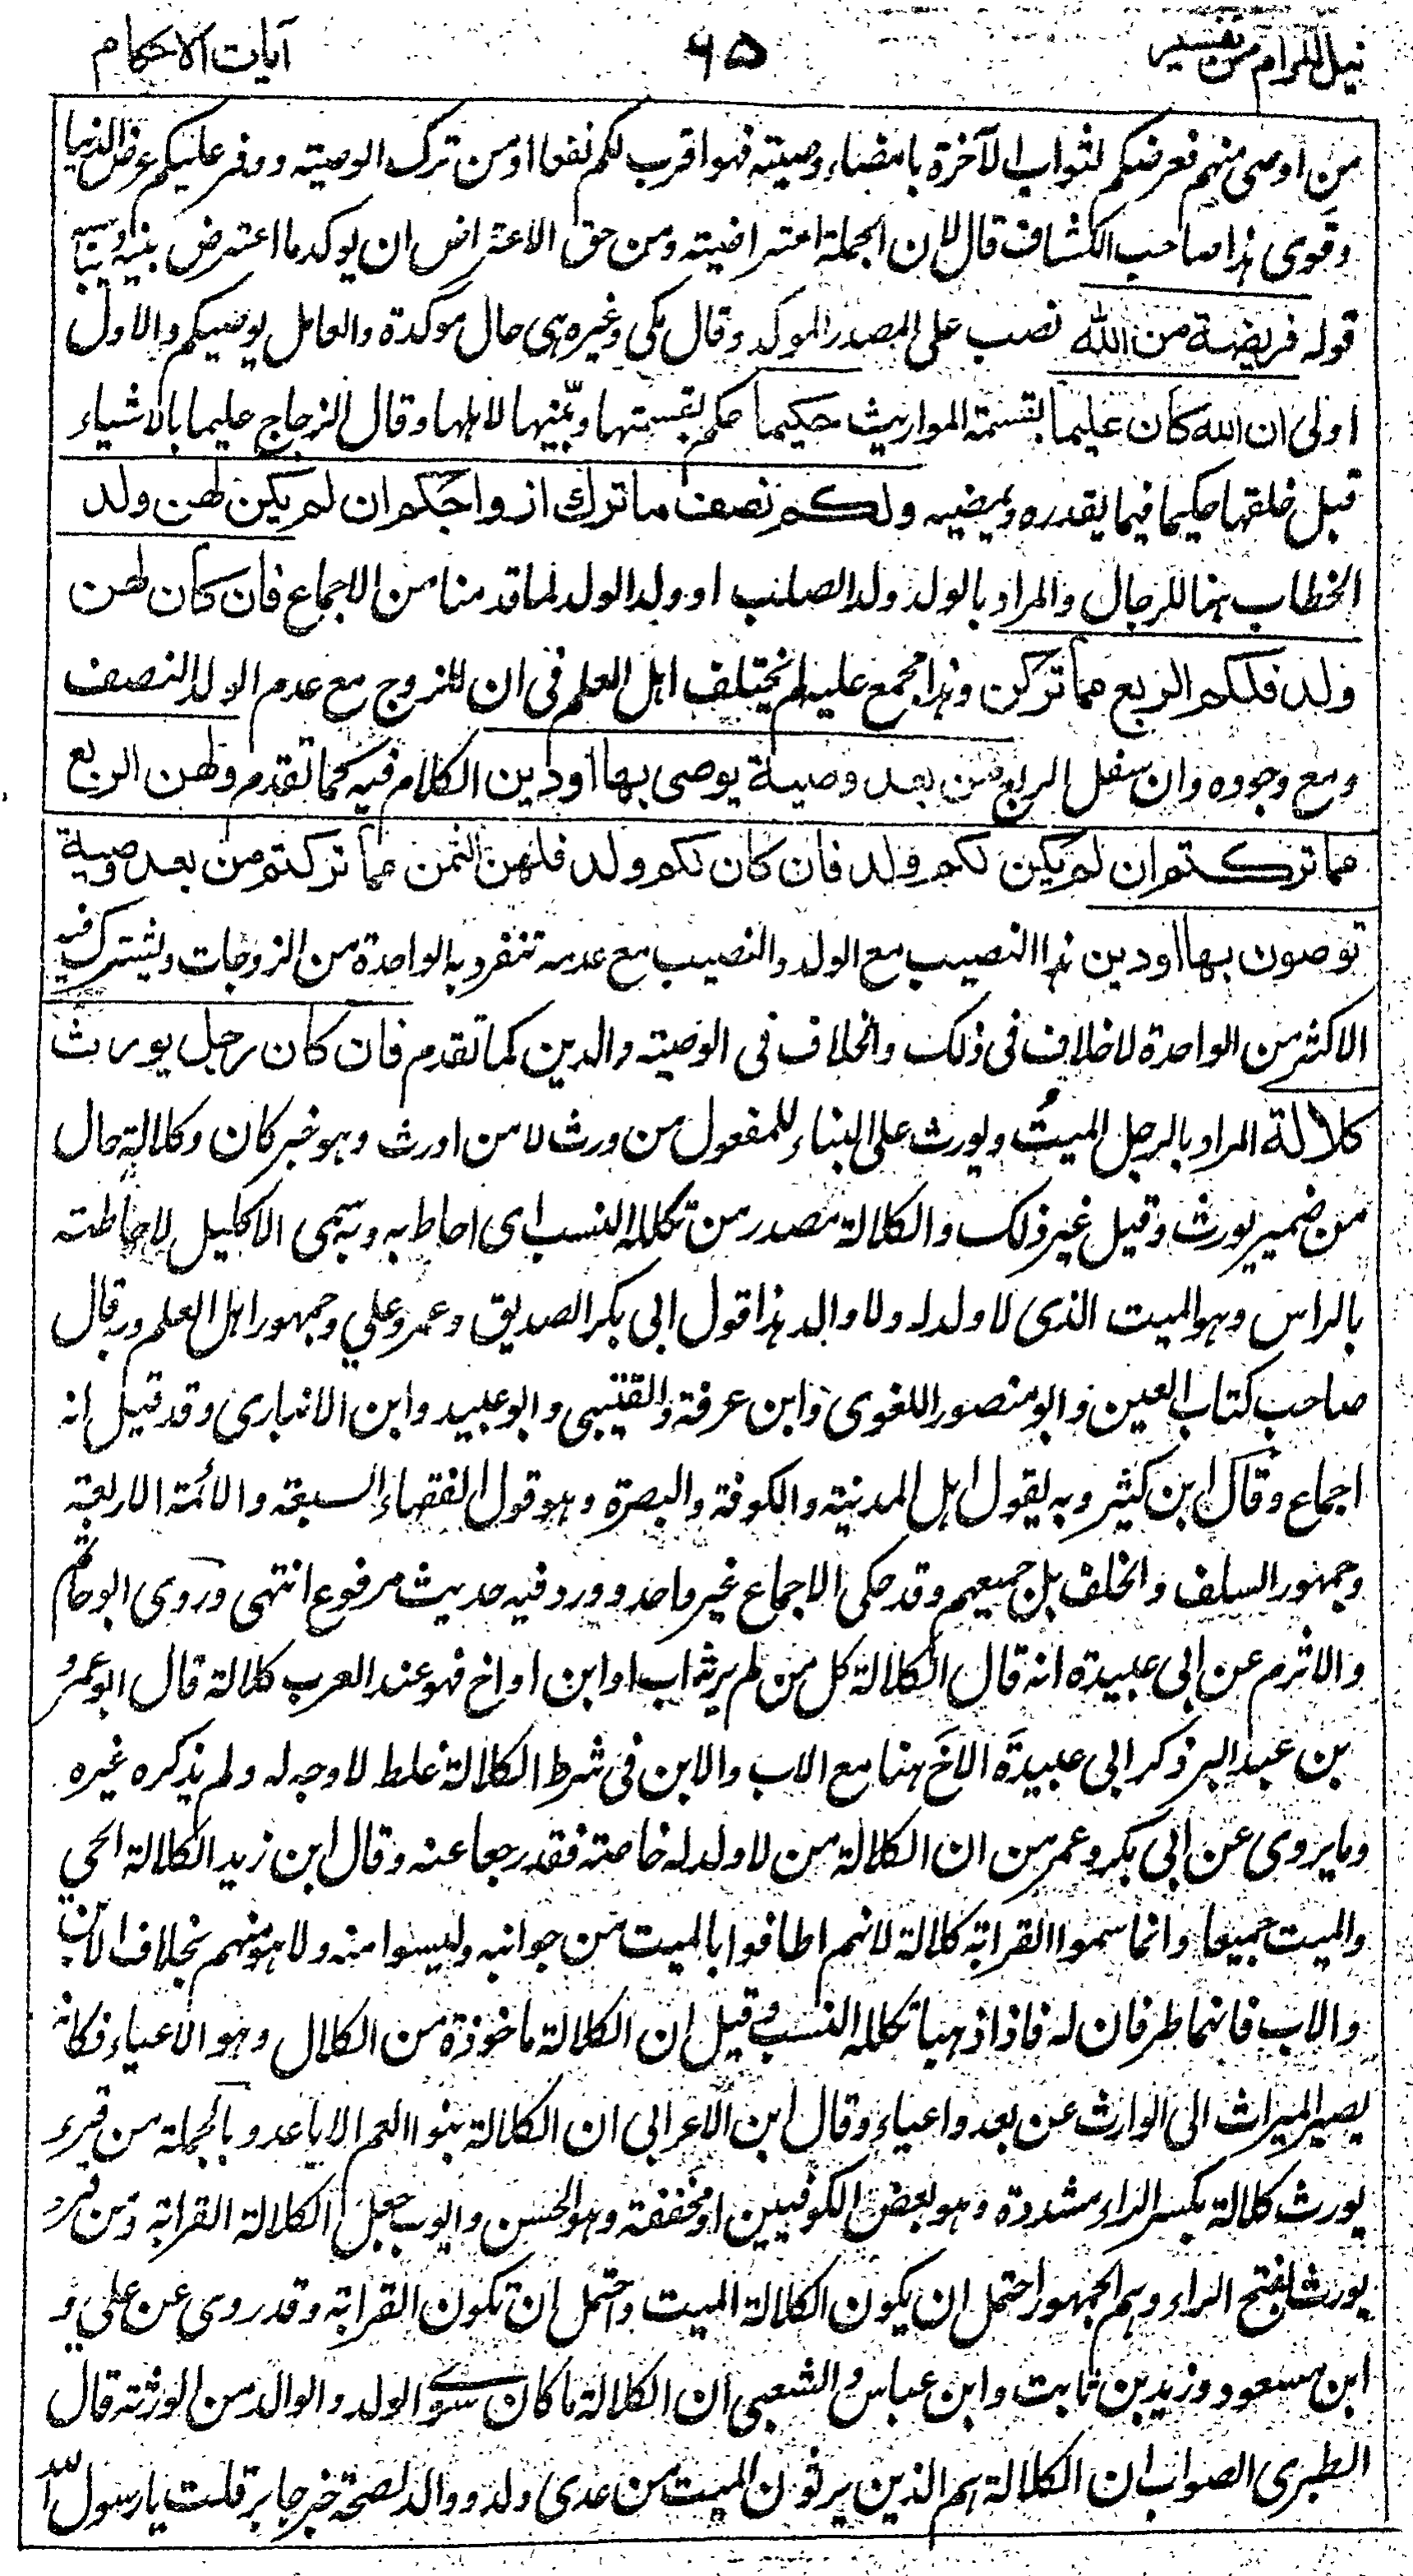 نيل المرام من تفسير ٦٥ آيات الاحكام
من اوصى منهم فعرضكم لثواب الآخرة بامضاء وصيته فهو اقرب لكم نفعا او من ترك الوصية ووفر عليكم عرض الدنيا
وقوى هذا صاحب الكشاف قال لان الجملة اعتراضية ومن حق الاعتراض ان يوكد ما اعترض بينه ويناسبه
قوله فريضة من الله نصب على المصدر الموكد وقال مكى وغيره هى حال موكدة والعامل يوصيكم والاول
اولى ان الله كان عليما بقسمة المواريث حكيما حكم بقسمتها وبينها لاهلها وقال الزجاج عليما بالاشياء
قبل خلقها حكيما فيما يقدره ويمضيه ولكم نصف ما ترك ازواجكم ان لم يكن لهن ولد
الخطاب هنا للرجال والمراد بالولد ولد الصلب او ولد الولد لما قدمنا من الاجماع فان كان لهن
ولد فلكم الربع مما تركن وهذا مجمع عليه لم يختلف اهل العلم فى ان للزوج مع عدم الولد النصف
ومع وجوده وان سفل الربع من بعد وصية يوصى بها او دين الكلام فيه كما تقدم ولهن الربع
مما تركتم ان لم يكن لكم ولد فان كان لكم ولد فلهن الثمن مما تركتم من بعد وصية
توصون بها او دين هذا النصيب مع الولد والنصيب مع عدمه تنفرد به الواحدة من الزوجات ويشترك فيه
الاكثر من الواحدة لا خلاف فى ذلك والخلاف فى الوصية والدين كما تقدم فان كان رجل يورث
كلالة المراد بالرجل الميت ويورث على البناء للمفعول من ورث لا من اورث وهو خبر كان وكلالة حال
من ضمير يورث وقيل غير ذلك والكلالة مصدر من تكلله النسب اى احاط به وبه سمى الاكليل لاحاطته
بالراس وهو الميت الذى لا ولد له ولا والد هذا قول ابى بكر الصديق وعمر وعلي وجمهور اهل العلم وبه قال
صاحب كتاب العين وابو منصور اللغوى وابن عرفة والقتيبى وابو عبيد وابن الانبارى وقد قيل انه
اجماع وقال ابن كثير وبه يقول اهل المدينة والكوفة والبصرة وهو قول الفقهاء السبعة والائمة الاربعة
وجمهور السلف والخلف بل جميعهم وقد حكى الاجماع غير واحد وورد فيه حديث مرفوع انتهى وروى ابو حاتم
والاثرم عن ابى عبيدة انه قال الكلالة كل من لم يرثه اب او ابن او اخ فهو عند العرب كلالة قال ابو عمرو
بن عبد البر ذكر ابى عبيدة الاخ هنا مع الاب والابن فى شرط الكلالة غلط لا وجه له ولم يذكره غيره
وما يروى عن ابى بكر وعمر من ان الكلالة من لا ولد له خاصة فقد رجعا عنه وقال ابن زيد الكلالة الحي
والميت جميعا وانما سموا القرابة كلالة لانهم اطافوا بالميت من جوانبه وليسوا منه ولا هو منهم بخلاف الابن
والاب فانهما طرفان له فاذا ذهبا تكلله النسب وقيل ان الكلالة ماخوذة من الكلال وهو الاعياء فكانه
يصير الميراث الى الوارث عن بعد واعياء وقال ابن الاعرابى ان الكلالة بنو العم الاباعد وبالجملة من قرء
يورث كلالة بكسر الراء مشددة وهو بعض الكوفيين او مخففة وهو الحسن وايوب جعل الكلالة القرابة ومن قرء
يورث بفتح الراء وهم الجمهور احتمل ان يكون الكلالة الميت واحتمل ان تكون القرابة وقد روى عن علي و
ابن مسعود وزيد بن ثابت وابن عباس والشعبى ان الكلالة ما كان سوى الولد والوالد من الورثة قال
الطبرى الصواب ان الكلالة هم الذين يرثون الميت من عدى ولده ووالده لصحة خبر جابر قلت يا رسول الله